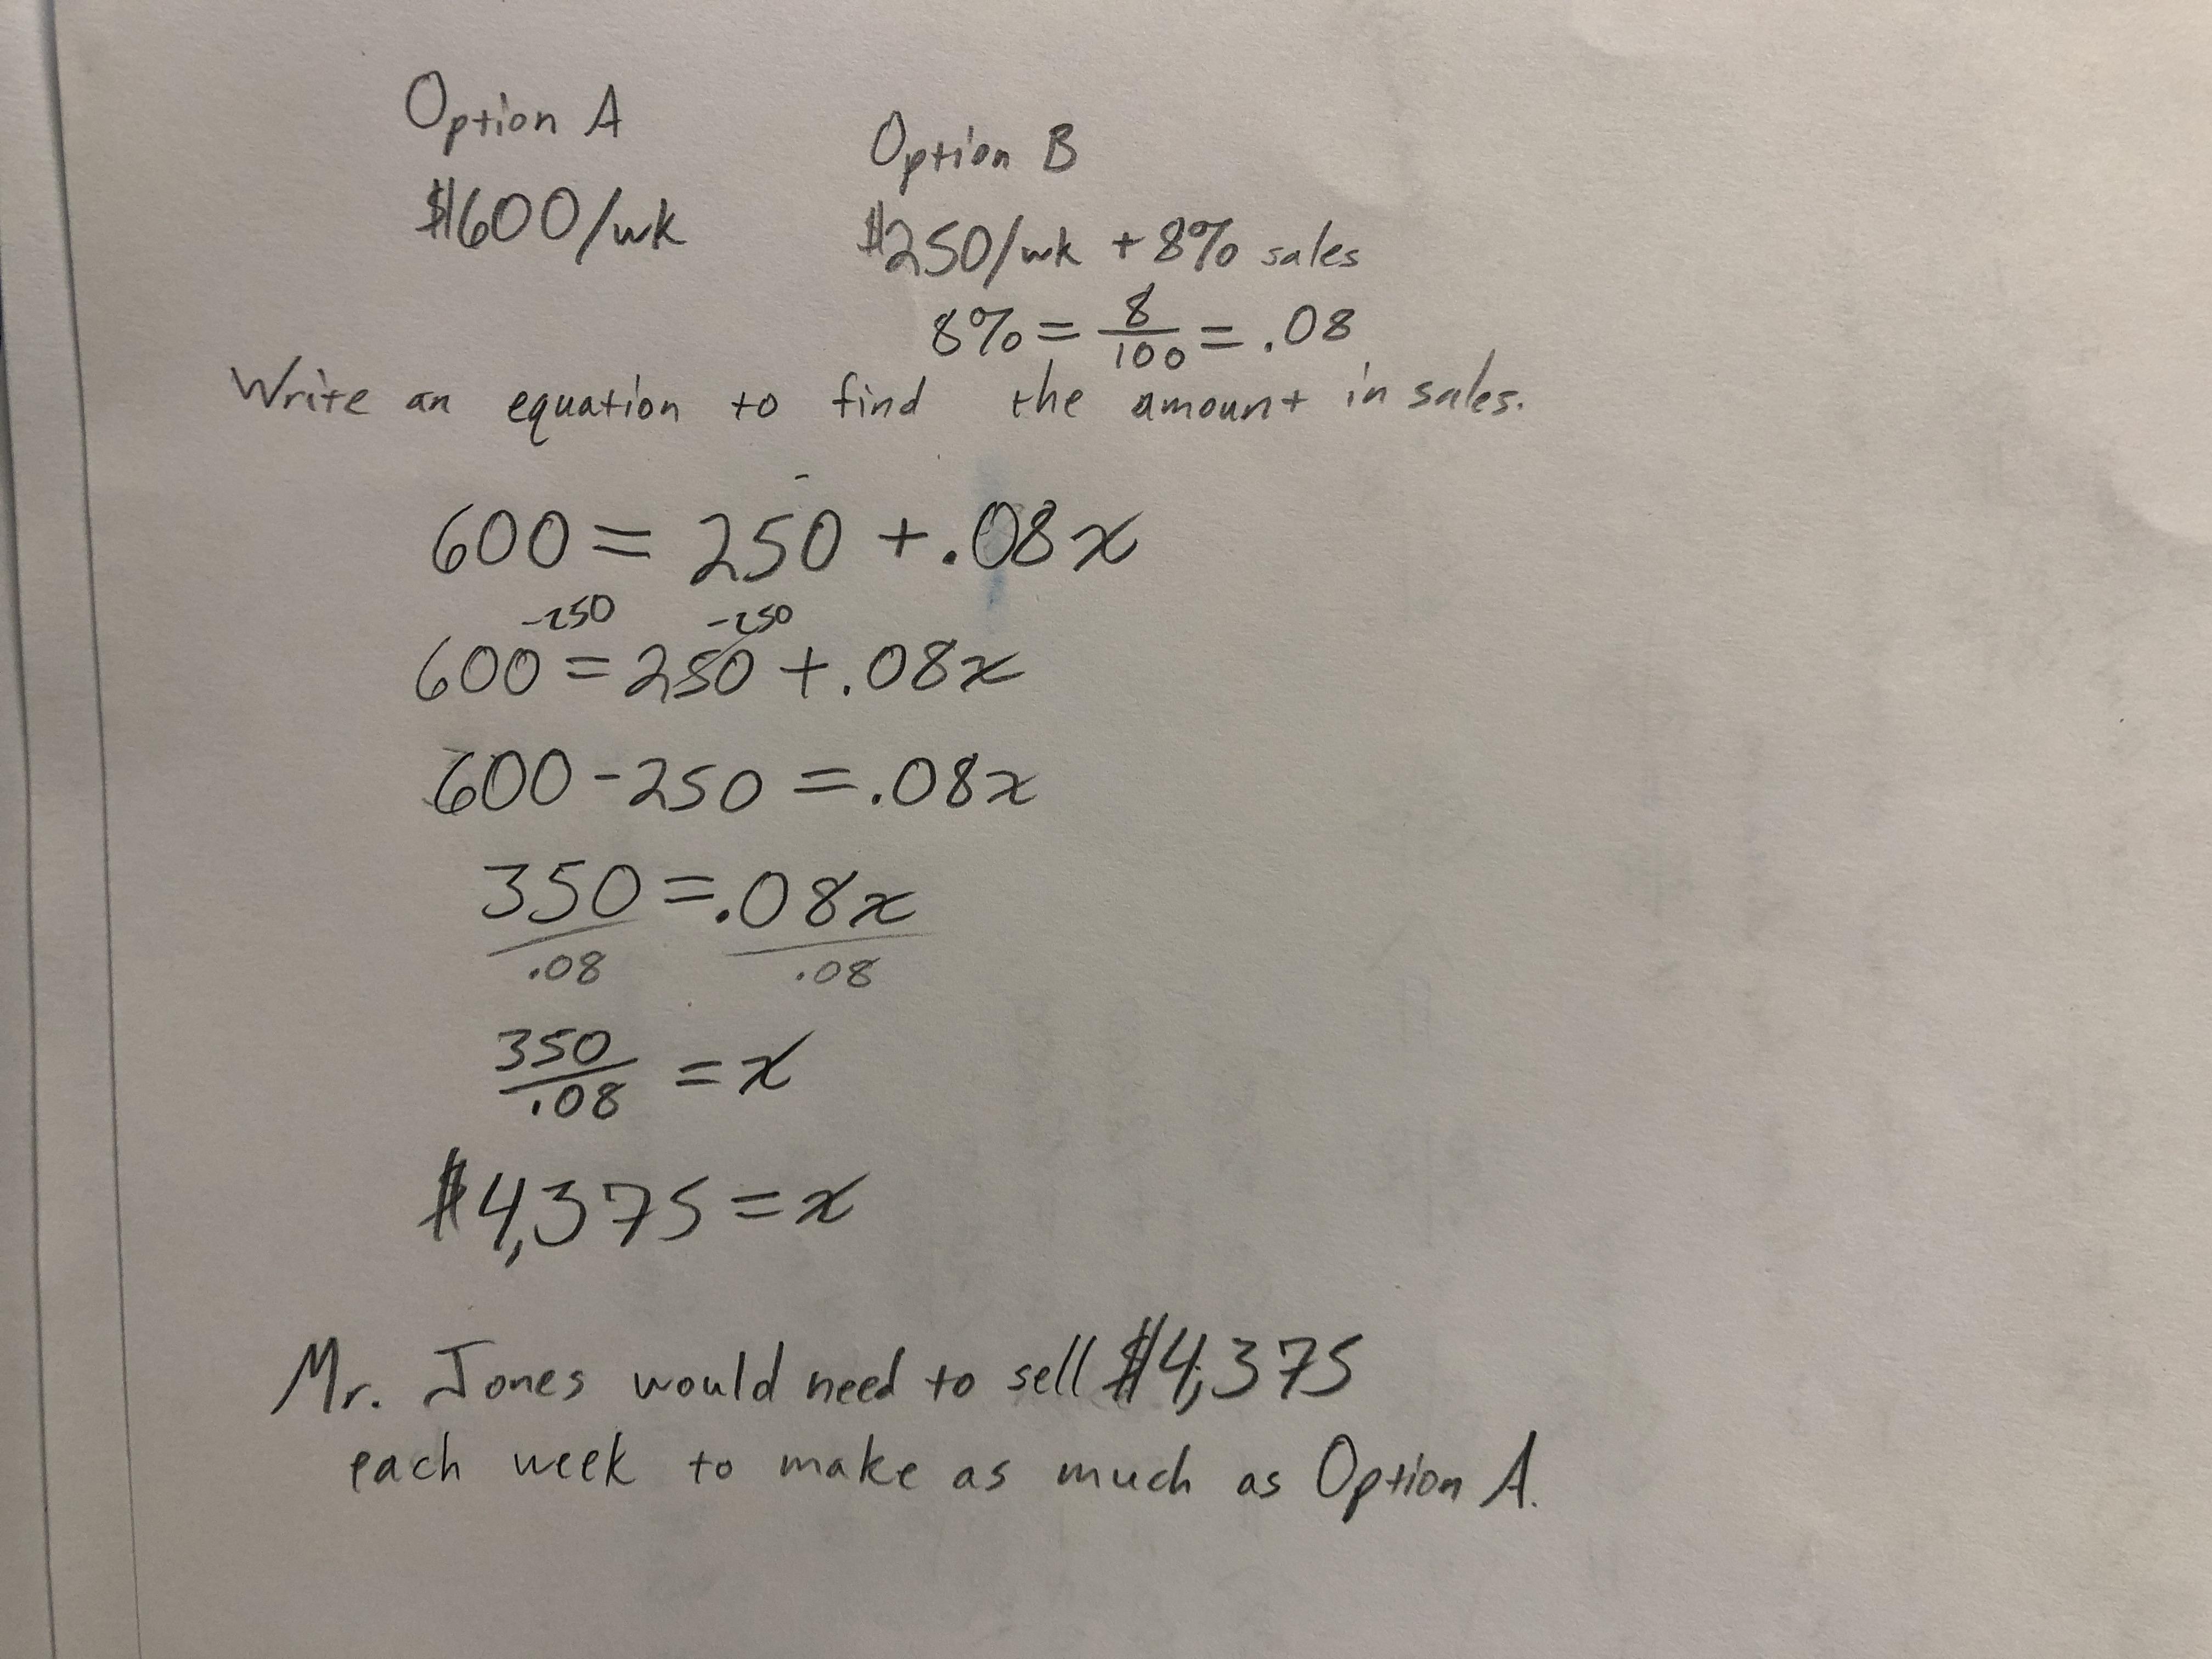 Option A
Option B
$600/wk
$250/wk + 8% sales
8% = 8/100 = .08
Write an equation to find the amount in sales.
600 = 250 + .08x
-250 -250
600 = 250 + .08x
600 - 250 = .08x
350 = .08x
.08 .08
350/.08 = x
$4,375 = x
Mr. Jones would need to sell $4,375
each week to make as much as Option A.